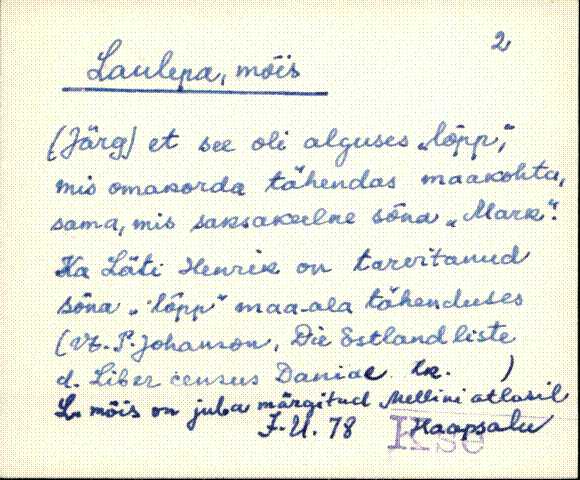 2
Laulepa, mõis
(Järg) et see oli alguses „lõpp",
mis omakorda tähendas maakohta,
sama, mis saksakeelne sõna „Mark".
Ka Läti Henrik on tarvitanud
sõna „lõpp" maa-ala tähenduses
(Vt. P. Johanson, Die Estlandliste
d. Liber census Daniae lk. )
L. mõis on juba märgitud Mellini atlasil
J. U. 78 Haapsalu
Kse